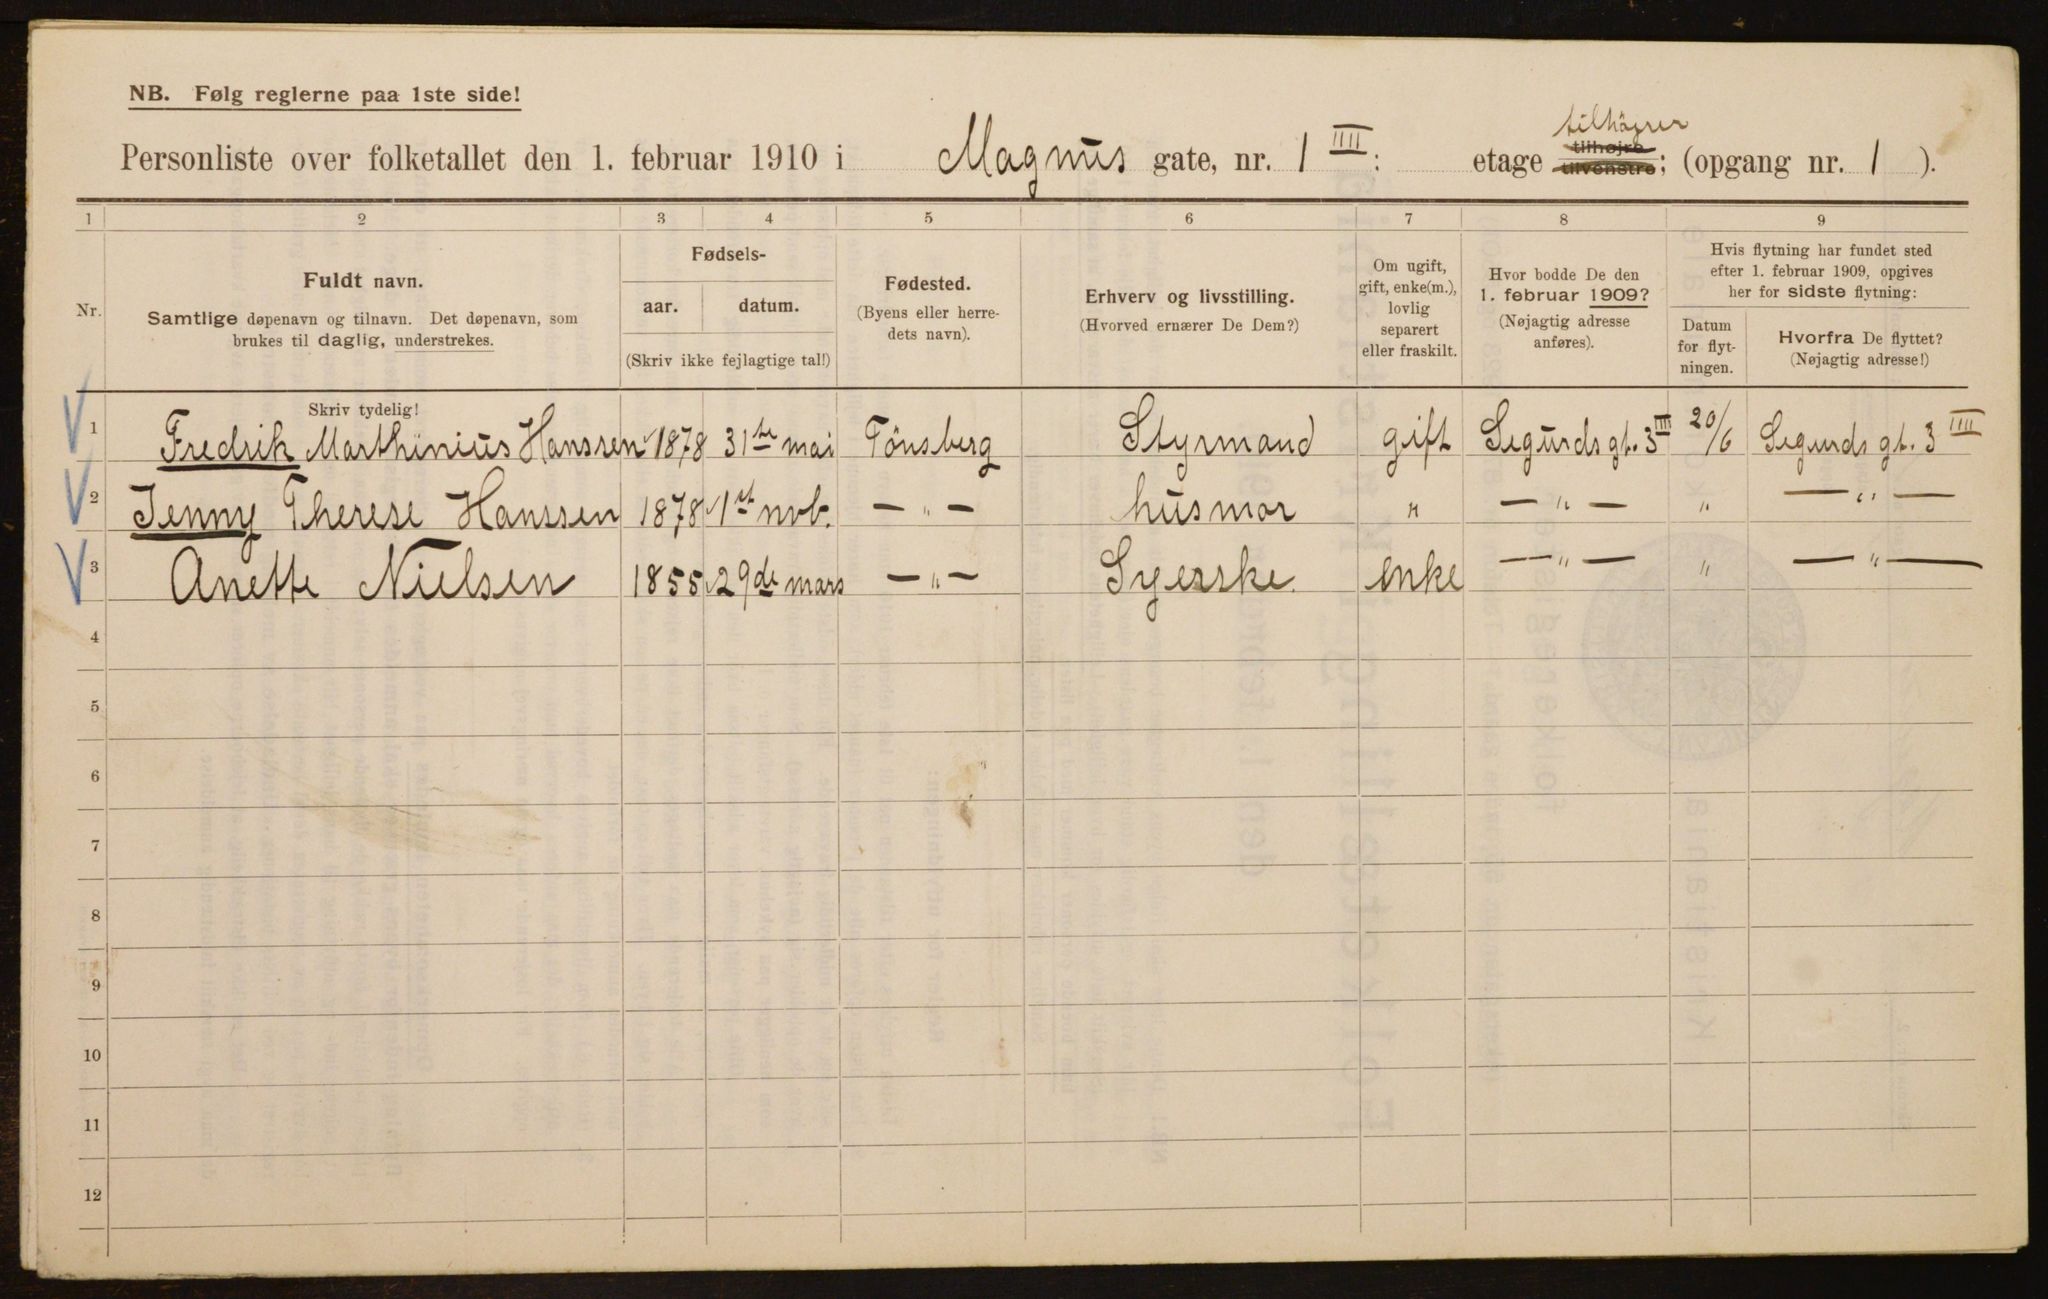 NB. Følg reglerne paa 1ste side!
tilhöjrer
Personliste over folketallet den 1. februar 1910 i Magnus gate, nr. 1 IIII : etage tilhøjre tilvenstre; (opgang nr. 1 ).
1 2 3 4 5 6 7 8 9
Nr.
Fuldt navn.
Samtlige døpenavn og tilnavn. Det døpenavn, som
brukes til daglig, understrekes.
Fødsels-
aar. datum.
(Skriv ikke fejlagtige tal!)
Fødested.
(Byens eller herre-
dets navn).
Erhverv og livsstilling.
(Hvorved ernærer De Dem?)
Om ugift,
gift, enke(m.),
lovlig
separert
eller fraskilt.
Hvor bodde De den
1. februar 1909?
(Nøjagtig adresse
anføres).
Hvis flytning har fundet sted
efter 1. februar 1909, opgives
her for sidste flytning:
Datum
for flyt-
ningen.
Hvorfra De flyttet?
(Nøjagtig adresse!)
Skriv tydelig!
1 Fredrik Marthinius Hanssen 1878 31te mai Tönsberg Styrmand gift Segurds gt. 3 IIII 20/6 Segurds gt. 3 IIII
2 Jenny Therese Hanssen 1878 1st nvb. — " — husmor " — " — " — " —
3 Anette Nielsen 1855 29de mars — " — Syerske enke — " — " — " —
4
5
6
7
8
9
10
11
12